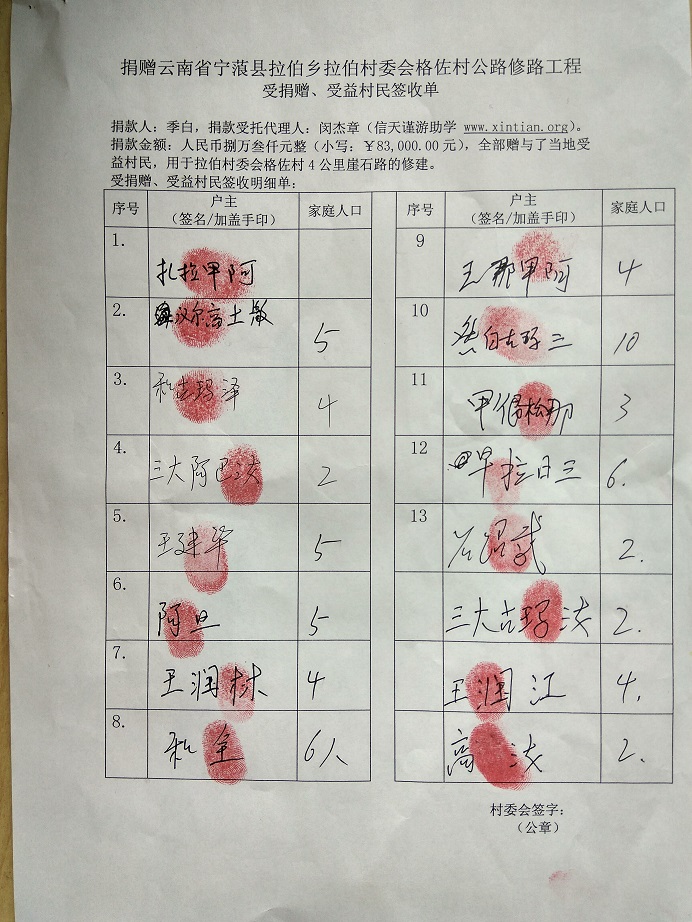 捐赠云南省宁蒗县拉伯乡拉伯村委会格佐村公路修路工程
受捐赠、受益村民签收单
捐款人：季白，捐款受托代理人：闵杰章（信天谨游助学 www.xintian.org）。
捐款金额：人民币捌万叁仟元整（小写：￥83,000.00 元），全部赠与了当地受
益村民，用于拉伯村委会格佐村 4 公里崖石路的修建。
受捐赠、受益村民签收明细单：
序号 户主（签名/加盖手印） 家庭人口
1. 扎拉甲阿
2. 汉尔高土散 5
3. 和古玛泽 4
4. 三大阿巴次 2
5. 王建华 5
6. 阿旦 5
7. 王润林 4
8. 和全 6人
序号 户主（签名/加盖手印） 家庭人口
9 王那甲阿 4
10 白古玛三 10
11 甲倡松那 3
12 甲拉日三 6.
13 武 2.
三大古玛次 2.
王润江 4.
高 次 2.
村委会签字：
（公章）